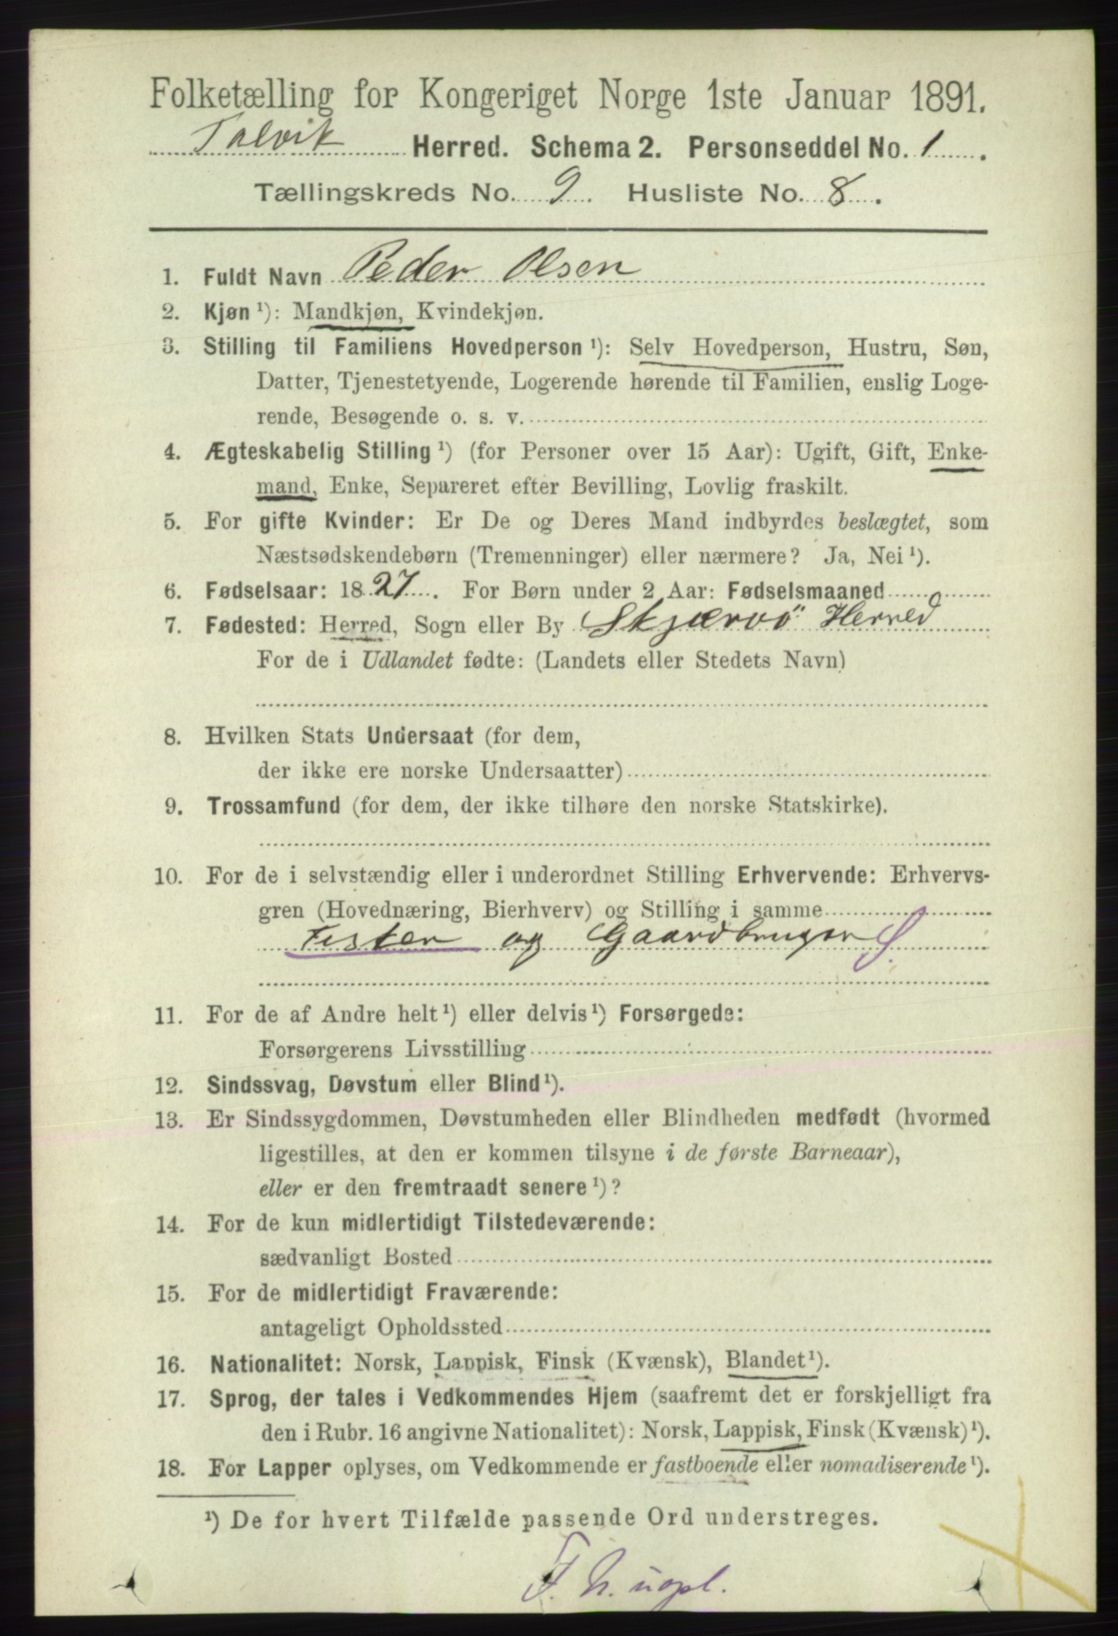 Folketælling for Kongeriget Norge 1ste Januar 1891.
Talvik Herred. Schema 2. Personseddel No. 1.
Tællingskreds No. 9. Husliste No. 8.
1. Fuldt Navn Peder Olsen
2. Kjøn ¹): Mandkjøn, Kvindekjøn.
3. Stilling til Familiens Hovedperson ¹): Selv Hovedperson, Hustru, Søn,
Datter, Tjenestetyende, Logerende hørende til Familien, enslig Loge-
rende, Besøgende o. s. v.
4. Ægteskabelig Stilling ¹) (for Personer over 15 Aar): Ugift, Gift, Enke-
mand, Enke, Separeret efter Bevilling, Lovlig fraskilt.
5. For gifte Kvinder: Er De og Deres Mand indbyrdes beslægtet, som
Næstsødskendebørn (Tremenninger) eller nærmere? Ja, Nei ¹).
6. Fødselsaar: 1827. For Børn under 2 Aar: Fødselsmaaned
7. Fødested: Herred, Sogn eller By Skjærvö Herred
For de i Udlandet fødte: (Landets eller Stedets Navn)
8. Hvilken Stats Undersaat (for dem,
der ikke ere norske Undersaatter)
9. Trossamfund (for dem, der ikke tilhøre den norske Statskirke).
10. For de i selvstændig eller i underordnet Stilling Erhvervende: Erhvervs-
gren (Hovednæring, Bierhverv) og Stilling i samme
Fisker og Gaardbruger S.
11. For de af Andre helt ¹) eller delvis ¹) Forsørgede:
Forsørgerens Livsstilling
12. Sindssvag, Døvstum eller Blind ¹).
13. Er Sindssygdommen, Døvstumheden eller Blindheden medfødt (hvormed
ligestilles, at den er kommen tilsyne i de første Barneaar),
eller er den fremtraadt senere ¹)?
14. For de kun midlertidigt Tilstedeværende:
sædvanligt Bosted
15. For de midlertidigt Fraværende:
antageligt Opholdssted
16. Nationalitet: Norsk, Lappisk, Finsk (Kvænsk), Blandet ¹).
17. Sprog, der tales i Vedkommendes Hjem (saafremt det er forskjelligt fra
den i Rubr. 16 angivne Nationalitet): Norsk, Lappisk, Finsk (Kvænsk) ¹).
18. For Lapper oplyses, om Vedkommende er fastboende eller nomadiserende ¹).
¹) De for hvert Tilfælde passende Ord understreges.
F. N. uopl.